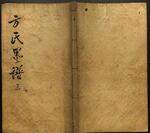 方氏墨譜 三